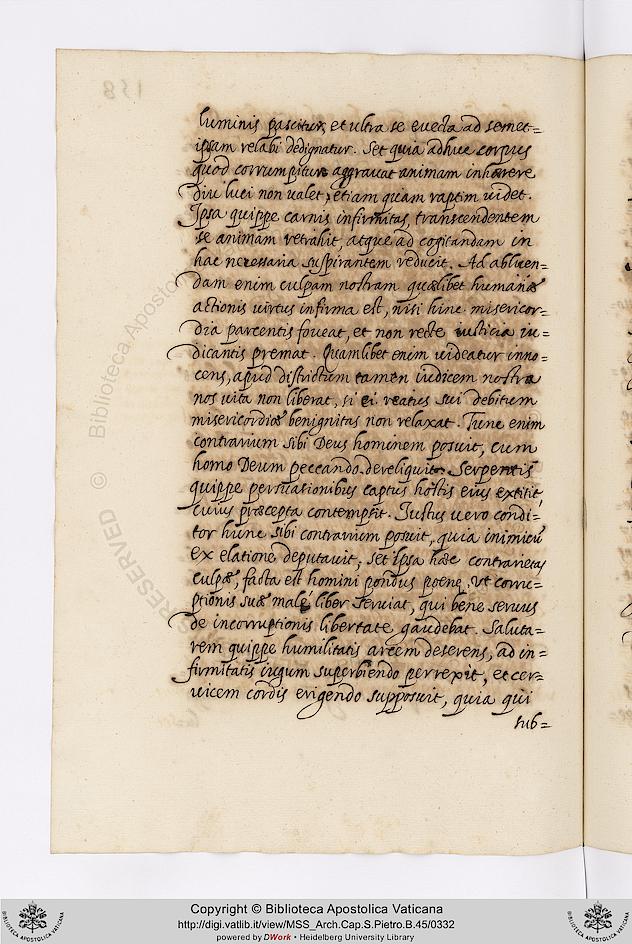 luminis pascitur, et ultra se euecta ad semet=
ipsam relabi dedignatur. Set quia adhuc corpus
quod corrumpitur aggrauat animam inhærere
diu luci non ualet, etiam quam raptim uidet.
Ipsa quippe carnis infirmitas, transcendentem
se animam retrahit, atque ad cogitandam in
hac necessaria suspirantem reducit. Ad abluen=
dam enim culpam nostram quælibet humanæ
actionis uirtus infirma est, nisi hinc misericor=
dia parcentis foueat, et non recte iusticia iu=
dicantis premat. Quamlibet enim uideatur inno=
cens, apud districtum tamen iudicem nostra
nos uita non liberat, si ei reatus sui debitum
misericordiæ benignitas non relaxat. Tunc enim
contrarium sibi Deus hominem posuit, cum
homo Deum peccando dereliquit. Serpentis
quippe persuasionibus captus hostis eius extitit,
cuius præcepta contempsit. Iustus uero condi=
tor hunc sibi contrarium posuit, quia inimicū
ex elatione deputauit; set ipsa hæc contrarietas
culpæ, facta est homini pondus poenę. Ut corru=
ptionis suæ male liber seruiat, qui bene seruus
de incorruptionis libertate gaudebat. Saluta=
rem quippe humilitatis arcem deserens, ad in=
firmitatis iugum superbiendo perrexit, et cer=
uicem cordis erigendo supposuit, quia qui
sub=
158
© Biblioteca Aposto
RESERVED
Copyright © Biblioteca Apostolica Vaticana
http://digi.vatlib.it/view/MSS_Arch.Cap.S.Pietro.B.45/0332
powered by DWork • Heidelberg University Library